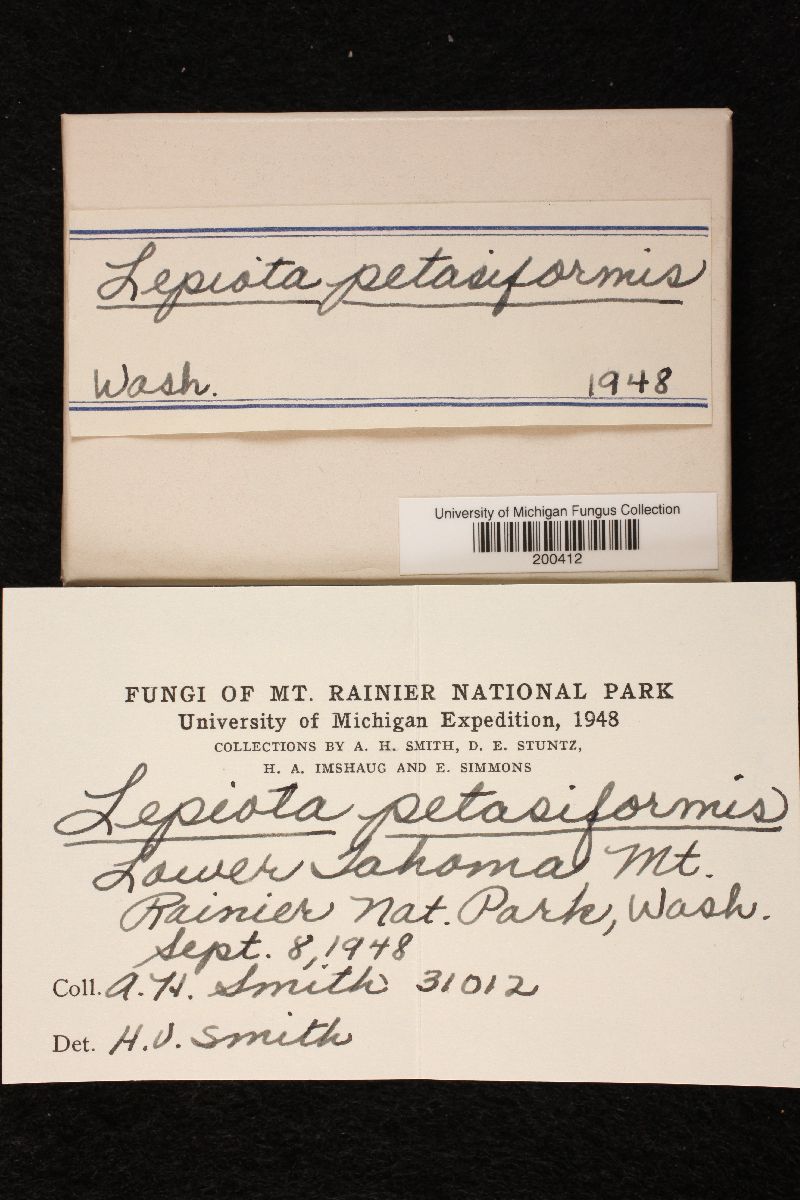 Lepiota petasiformis
Wash. 1948
University of Michigan Fungus Collection
200412
FUNGI OF MT. RAINIER NATIONAL PARK
University of Michigan Expedition, 1948
COLLECTIONS BY A. H. SMITH, D. E. STUNTZ,
H. A. IMSHAUG AND E. SIMMONS
Lepiota petasiformis
Lower Tahoma Mt.
Rainier Nat. Park, Wash.
Sept. 8, 1948
Coll. A. H. Smith 31012
Det. H. V. Smith